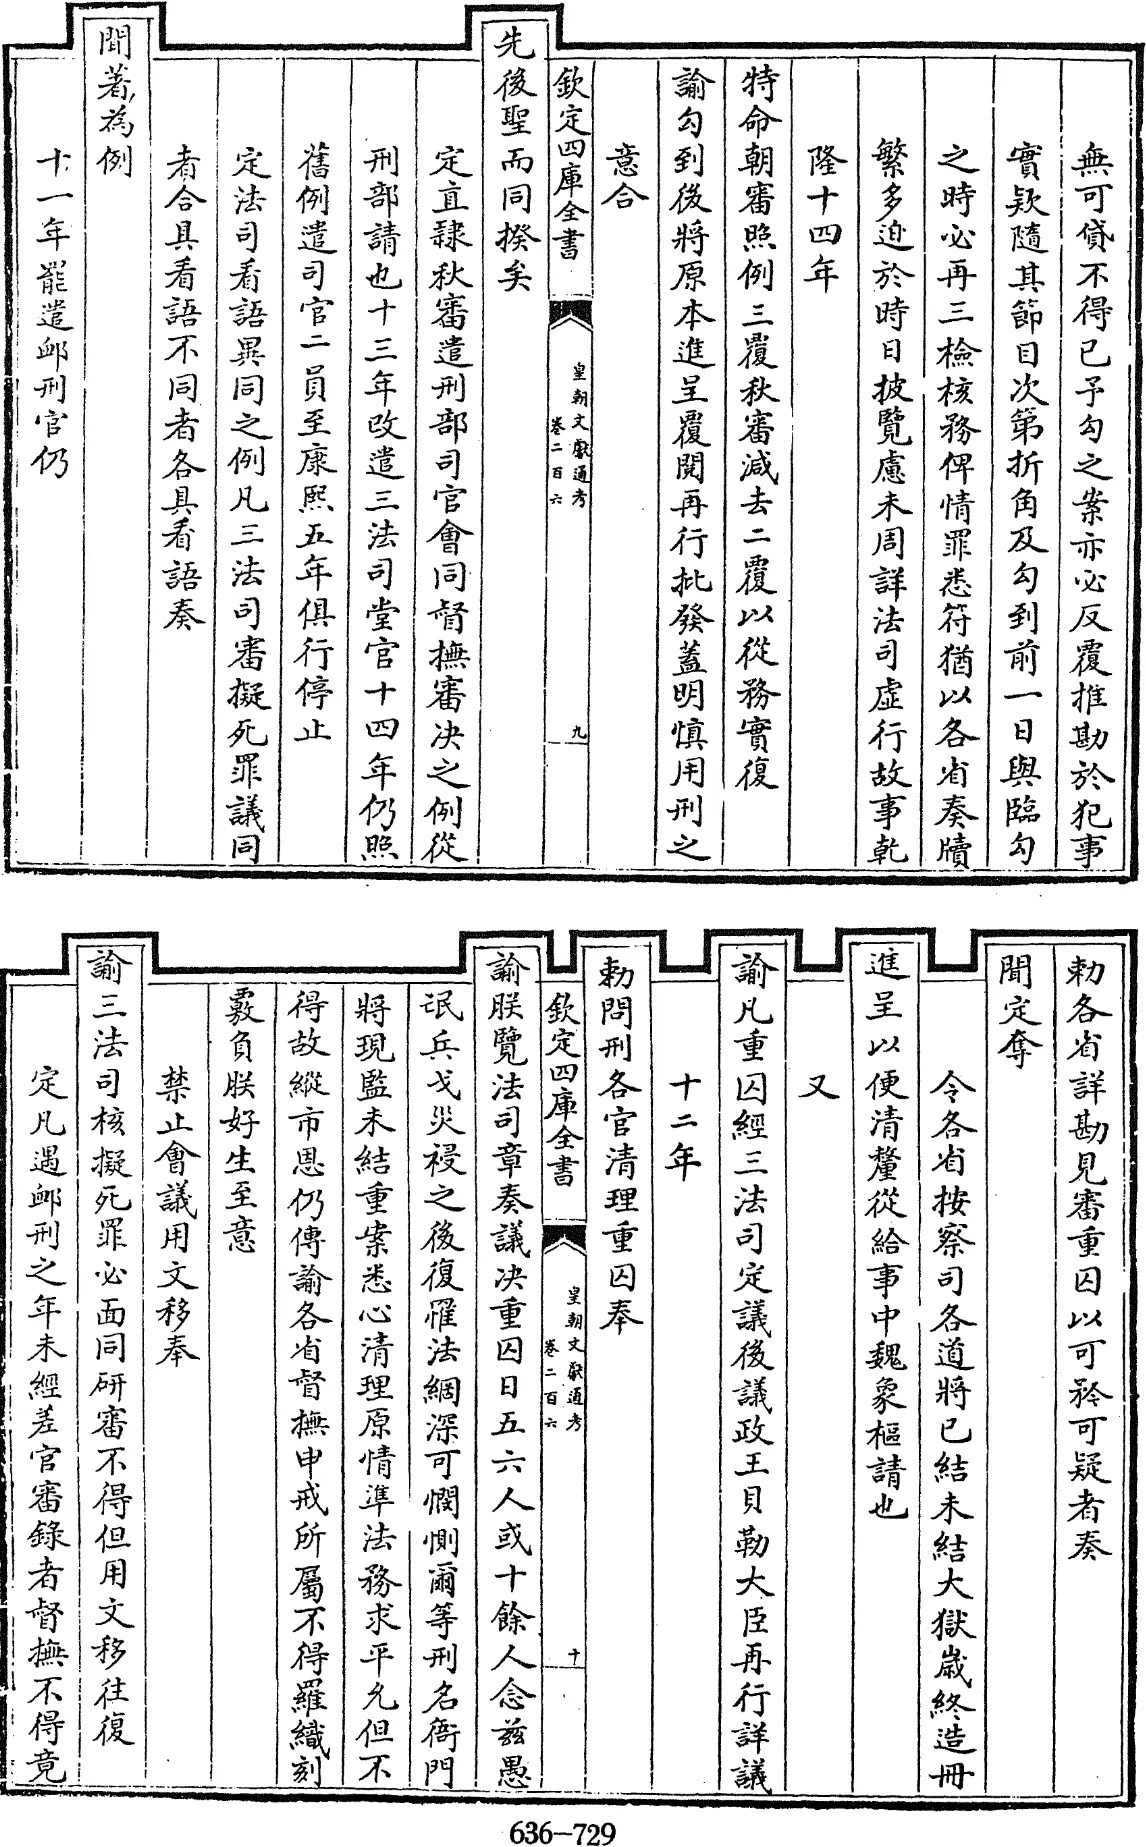 無可貸不得已予勾之案亦必反覆推勘於犯事
實欵隨其節目次第折角及勾到前一日與臨勾
之時必再三檢核務俾情罪悉符猶以各省奏牘
繁多迫於時日披覽慮未周詳法司虛行故事乾
隆十四年
特命朝審照例三覆秋審減去二覆以從務實復
諭勾到後將原本進呈覆閱再行批發蓋明慎用刑之
意合
欽定四庫全書
皇朝文獻通考
卷二百六
九
先後聖而同揆矣
定直隸秋審遣刑部司官會同督撫審決之例從
刑部請也十三年改遣三法司堂官十四年仍照
舊例遣司官二員至康熙五年俱行停止
定法司看語異同之例凡三法司審擬死罪議同
者合具看語不同者各具看語奏
聞著為例
十一年罷遣䘏刑官仍
勅各省詳勘見審重囚以可矜可疑者奏
聞定奪
令各省按察司各道將已結未結大獄歲終造冊
進呈以便清釐從給事中魏象樞請也
又
諭凡重囚經三法司定議後議政王貝勒大臣再行詳議
十二年
勅問刑各官清理重囚奉
欽定四庫全書
皇朝文獻通考
卷二百六
十
諭朕覽法司章奏議決重囚日五六人或十餘人念茲愚
氓兵戈災祲之後復罹法網深可憫惻爾等刑名衙門
將現監未結重案悉心清理原情準法務求平允但不
得故縱市恩仍傳諭各省督撫申戒所屬不得羅織刻
覈負朕好生至意
禁止會議用文移奉
諭三法司核擬死罪必面同研審不得但用文移往復
定凡遇䘏刑之年未經差官審錄者督撫不得竟
636-729